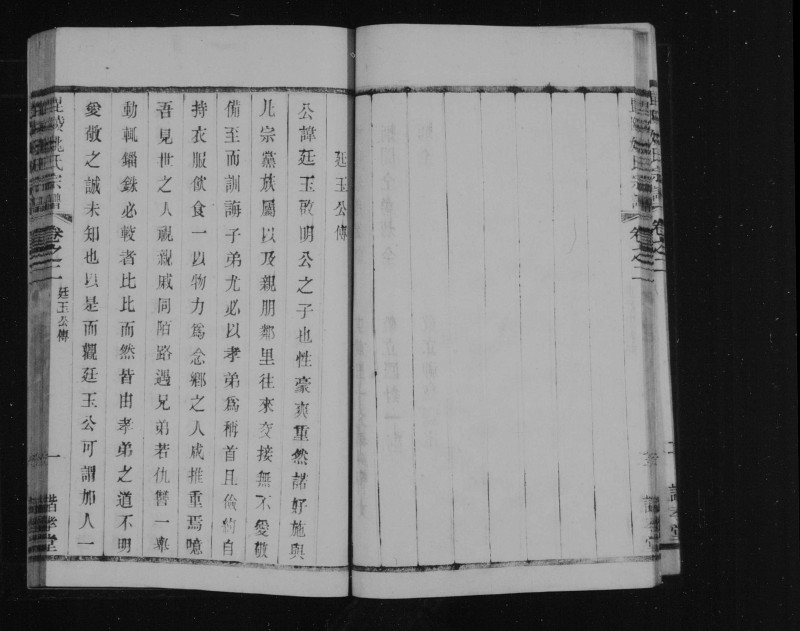 廷玉公傳
公諱廷玉啟明公之子也性豪爽重然諾好施與
凡宗黨族屬以及親朋鄰里往來交接無不愛敬
備至而訓誨子弟尤必以孝弟為稱首且儉約自
持衣服飲食一以物力為念鄉之人咸推重焉噫
吾見世之人視親戚同陌路遇兄弟若仇讐一舉
動輒錙銖必較者比比而然皆由孝弟之道不明
愛敬之誠未知也以是而觀廷玉公可謂加人一
毘陵姚氏宗譜 卷之二 廷玉公傳 一